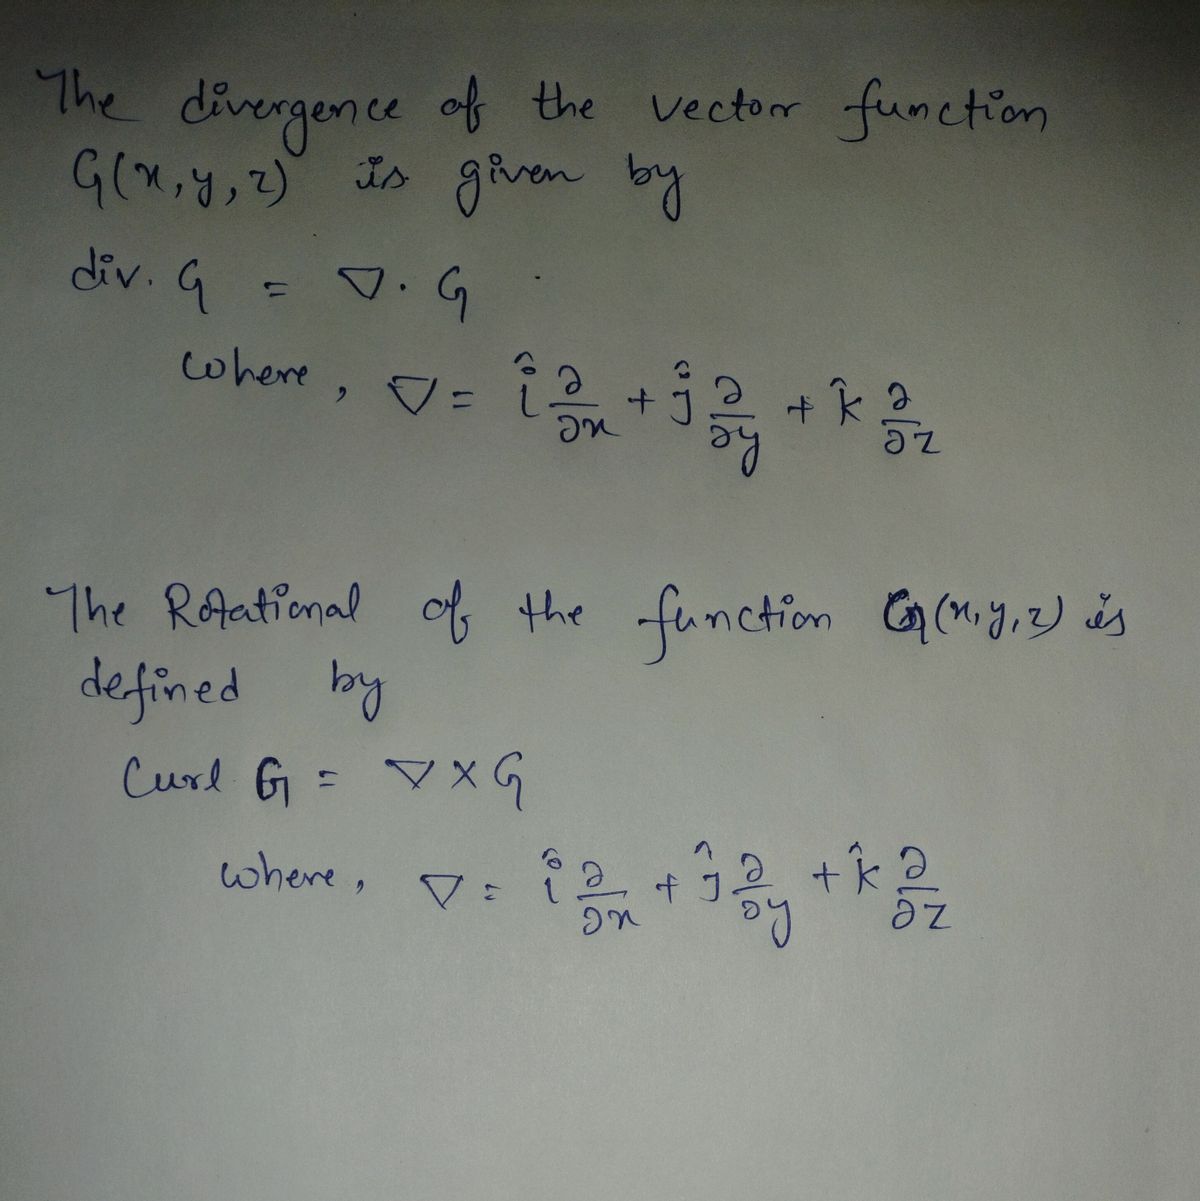 The divergence of the vector function
G(x,y,z) is given by
div. G = ∇. G
where, ∇ = î ∂/∂x + ĵ ∂/∂y + k̂ ∂/∂z
The Rotational of the function G(x,y,z) is
defined by
Curl G = ∇ × G
where, ∇ = î ∂/∂x + ĵ ∂/∂y + k̂ ∂/∂z